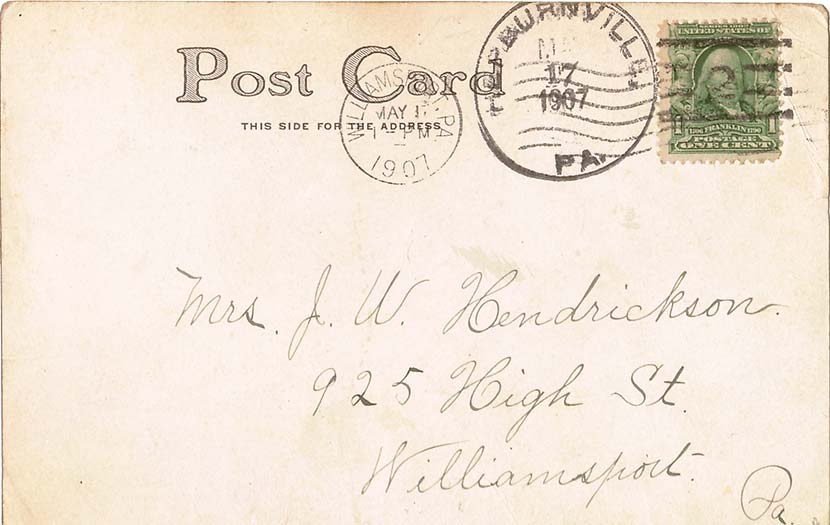 Post Card
THIS SIDE FOR THE ADDRESS
WILLIAMSPORT, PA
MAY
1907
HEPBURNVILLE
17
1907
PA.
SERIES 1902
UNITED STATES OF
2
1706 FRANKLIN 1790
POSTAGE
ONE CENT
Mrs. J. W. Hendrickson.
925 High St.
Williamsport.
Pa.